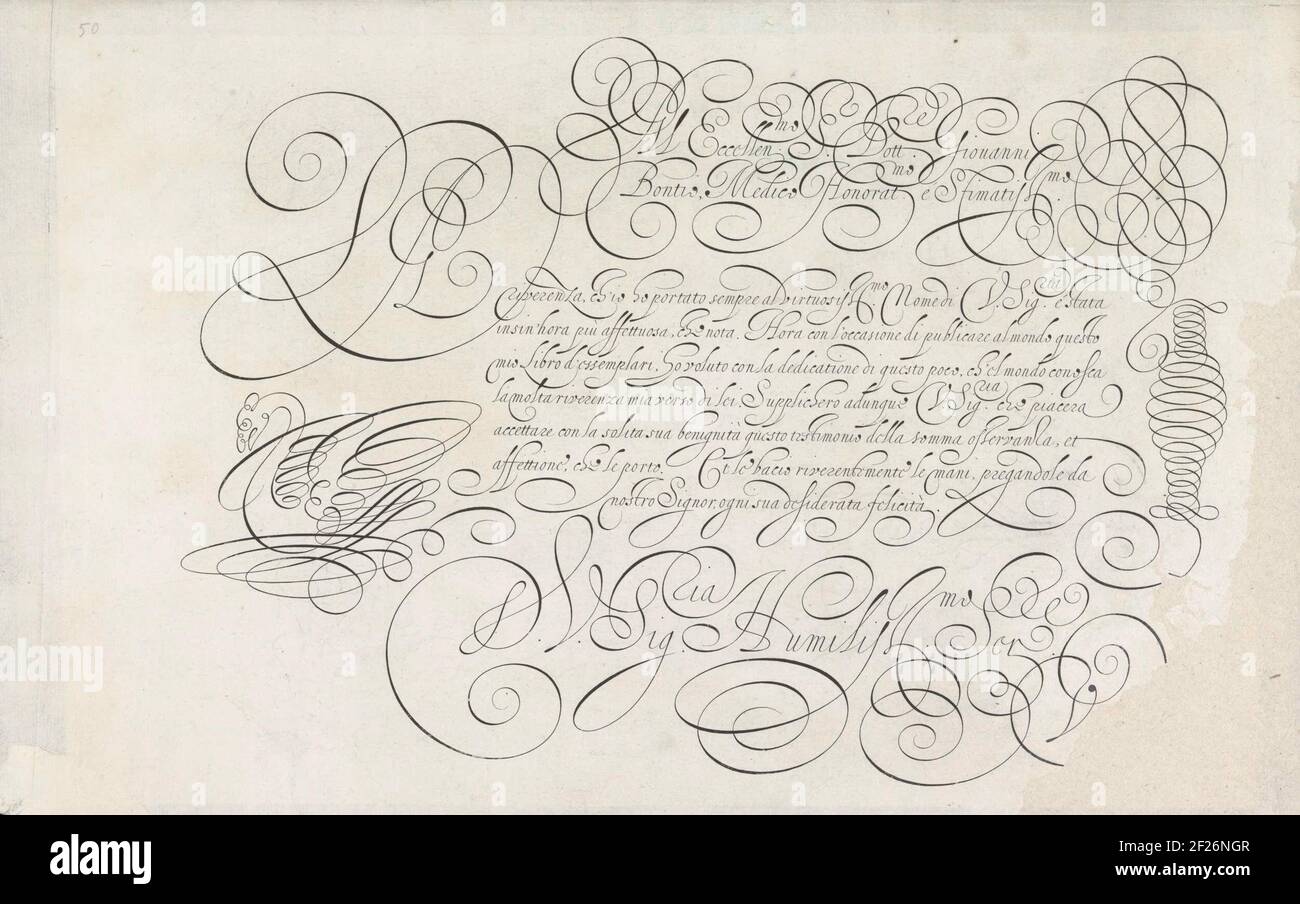 50
All Eccellen.mo S. Dott.re Giovanni
Bontio, Medico Honorat.mo e Stimatiss.mo
LA riverenza, ch'io ho portato sempre al virtuosiss.mo Nome di V. Sig.ria e stata
insin'hora più affettuosa, che nota. Hora con l'occasione di publicare al mondo questo
mio libro d'essemplari, ho voluto con la dedicatione di questo poco, ch'el mondo conosca
la molta riverenza mia verso di lei. Supplichero adunque V. Sig.ria che piacera
accettare con la solita sua benignità questo testimonio della somma osservanza, et
affettione, che le porto. Et le bacio riverentemente le mani, pregandole da
nostro Signor, ogni sua desiderata felicità.
D. V. Sig.ria Humiliss.mo Ser.re
alamy
Image ID: 2F26NGR
www.alamy.com